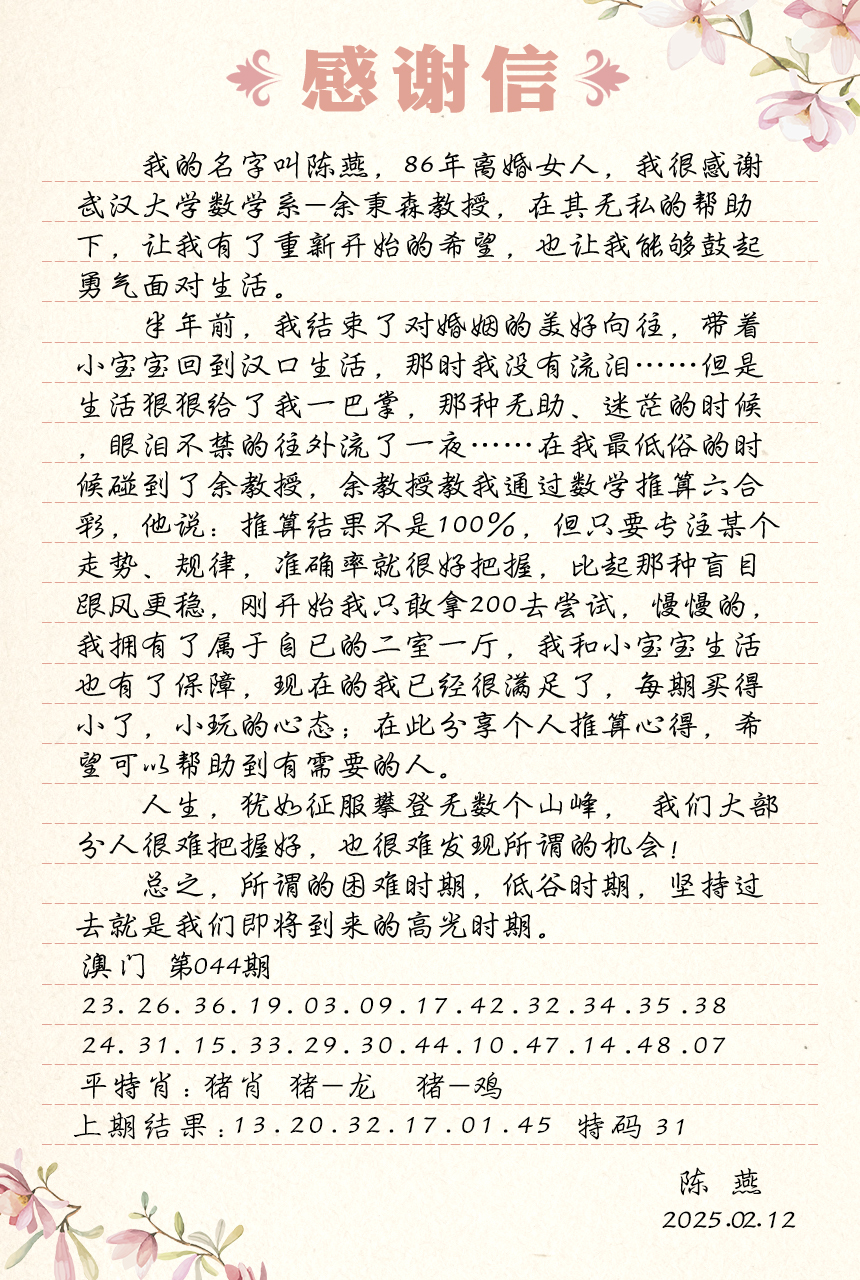 感谢信
我的名字叫陈燕，86年离婚女人，我很感谢
武汉大学数学系—余秉森教授，在其无私的帮助
下，让我有了重新开始的希望，也让我能够鼓起
勇气面对生活。
半年前，我结束了对婚姻的美好向往，带着
小宝宝回到汉口生活，那时我没有流泪……但是
生活狠狠给了我一巴掌，那种无助、迷茫的时候
，眼泪不禁的往外流了一夜……在我最低俗的时
候碰到了余教授，余教授教我通过数学推算六合
彩，他说：推算结果不是100%，但只要专注某个
走势、规律，准确率就很好把握，比起那种盲目
跟风更稳，刚开始我只敢拿200去尝试，慢慢的，
我拥有了属于自已的二室一厅，我和小宝宝生活
也有了保障，现在的我已经很满足了，每期买得
小了，小玩的心态；在此分享个人推算心得，希
望可以帮助到有需要的人。
人生，犹如征服攀登无数个山峰， 我们大部
分人很难把握好，也很难发现所谓的机会！
总之，所谓的困难时期，低谷时期，坚持过
去就是我们即将到来的高光时期。
澳门 第044期
23.26.36.19.03.09.17.42.32.34.35.38
24.31.15.33.29.30.44.10.47.14.48.07
平特肖：猪肖 猪—龙 猪—鸡
上期结果：13.20.32.17.01.45 特码 31
陈 燕
2025.02.12